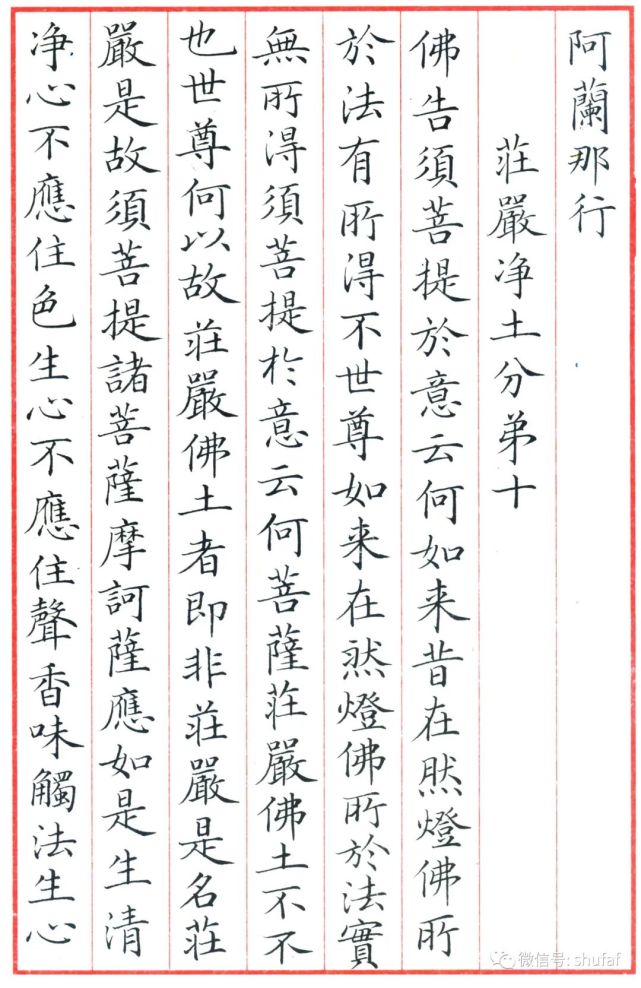 阿蘭那行
莊嚴淨土分弟十
佛告須菩提於意云何如来昔在然燈佛所
於法有所得不世尊如来在然燈佛所於法實
無所得須菩提於意云何菩薩莊嚴佛土不不
也世尊何以故莊嚴佛土者即非莊嚴是名莊
嚴是故須菩提諸菩薩摩訶薩應如是生清
净心不應住色生心不應住聲香味觸法生心
微信号: shufaf